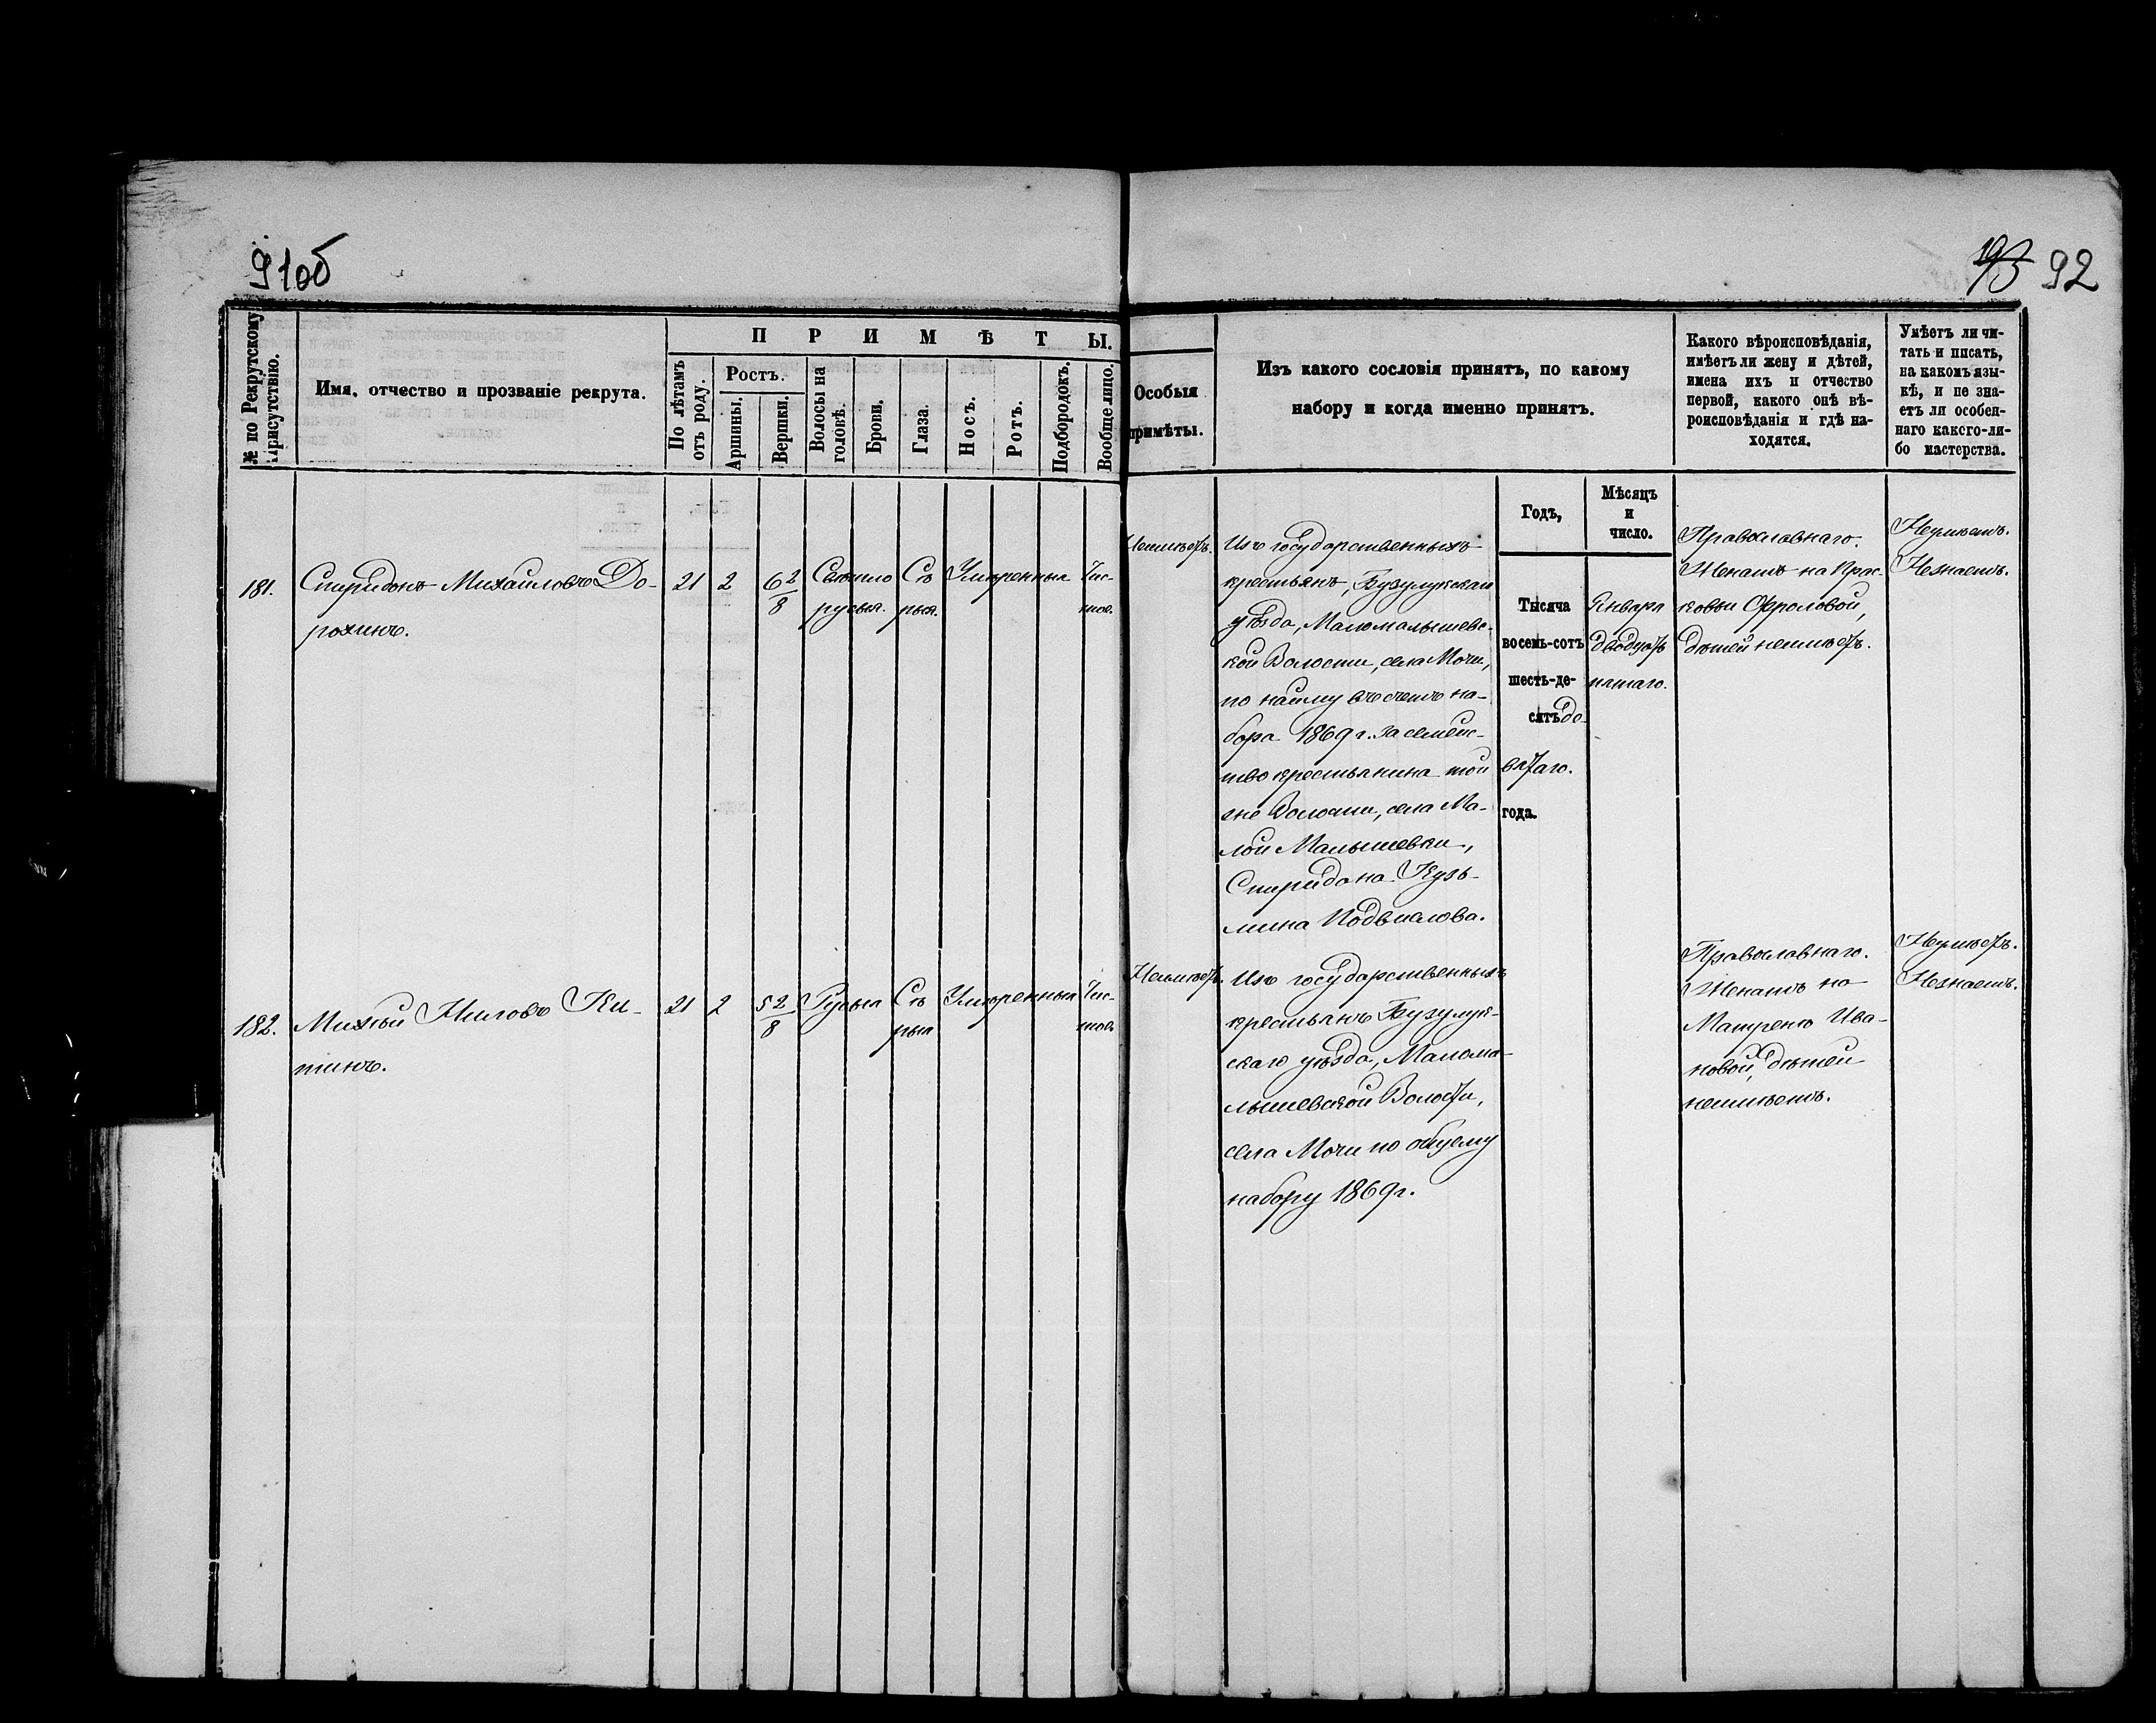 91об
193 92
№ по Рекрутскому
Присутствію.
Имя, отчество и прозваніе рекрута.
ПРИМѢТЫ.
По лѣтамъ
отъ роду.
Ростъ.
Аршины.
Вершки.
Волосы на
головѣ.
Брови.
Глаза.
Носъ.
Ротъ.
Подбородокъ.
Вообще лицо.
Особыя
примѣты.
Изъ какого сословія принятъ, по какому
набору и когда именно принятъ.
Какого вѣроисповѣданія,
имѣетъ ли жену и дѣтей,
имена ихъ и отчество
первой, какого онѣ вѣ-
роисповѣданія и гдѣ на-
ходятся.
Умѣетъ ли чи-
тать и писать,
на какомъ язы-
кѣ, и не зна-
етъ ли особен-
наго какого-ли-
бо мастерства.
Годъ,
Мѣсяцъ
и
число.
181.
Спиридонъ Михайловъ До-
рохинъ.
21
2
6 2/8
Свѣтло
русыя.
Сѣ
рыя.
Умѣренныя
Чис-
тое.
Неимѣетъ.
Изъ государственныхъ
крестьянъ, Бузулукскаго
уѣзда, Маломалышевс-
кой Волости, села Мочи,
по найму въ счетъ на-
бора 1869 г. за семейс-
тво крестьянина той
же Волости, села Ма-
лой Малышевки,
Спиридона Кузь-
мина Подвалова.
Тысяча
восемь-сотъ
шесть-де-
сятъ де-
вятаго.
года.
Января
двадцать
пятаго.
Православнаго.
Женатъ на Прас-
ковьи Фроловой,
дѣтей неимѣетъ.
Неумѣетъ.
Незнаетъ.
182.
Михѣй Ниловъ Ки-
тинъ.
21
2
5 2/8
Русыя
Сѣ
рыя
Умѣренныя
Чис-
тое.
Неимѣетъ.
Изъ государственныхъ
крестьянъ Бузулук-
скаго уѣзда, Малома-
лышевской Волости,
села Мочи по общему
набору 1869 г.
Православнаго.
Женатъ на
Матренѣ Ива-
новой, дѣтей
неимѣетъ.
Неумѣетъ.
Незнаетъ.